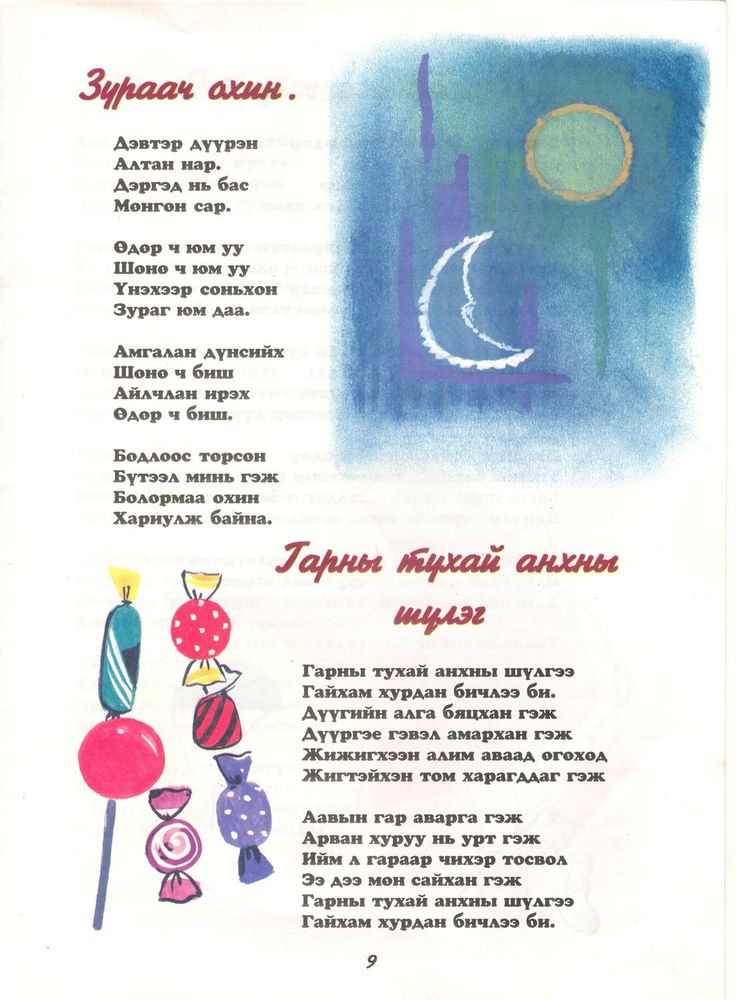 Зураач охин.
Дэвтэр дүүрэн
Алтан нар.
Дэргэд нь бас
Мөнгөн сар.
Өдөр ч юм уу
Шөнө ч юм уу
Үнэхээр соньхон
Зураг юм даа.
Амгалан дүнсийх
Шөнө ч биш
Айлчлан ирэх
Өдөр ч биш.
Бодлоос төрсөн
Бүтээл минь гэж
Болормаа охин
Хариулж байна.
Гарны тухай анхны
шүлэг
Гарны тухай анхны шүлгээ
Гайхам хурдан бичлээ би.
Дүүгийн алга бяцхан гэж
Дүүргэе гэвэл амархан гэж
Жижигхээн алим аваад өгөхөд
Жигтэйхэн том харагддаг гэж
Аавын гар аварга гэж
Арван хуруу нь урт гэж
Ийм л гараар чихэр тосвол
Ээ дээ мөн сайхан гэж
Гарны тухай анхны шүлгээ
Гайхам хурдан бичлээ би.
9